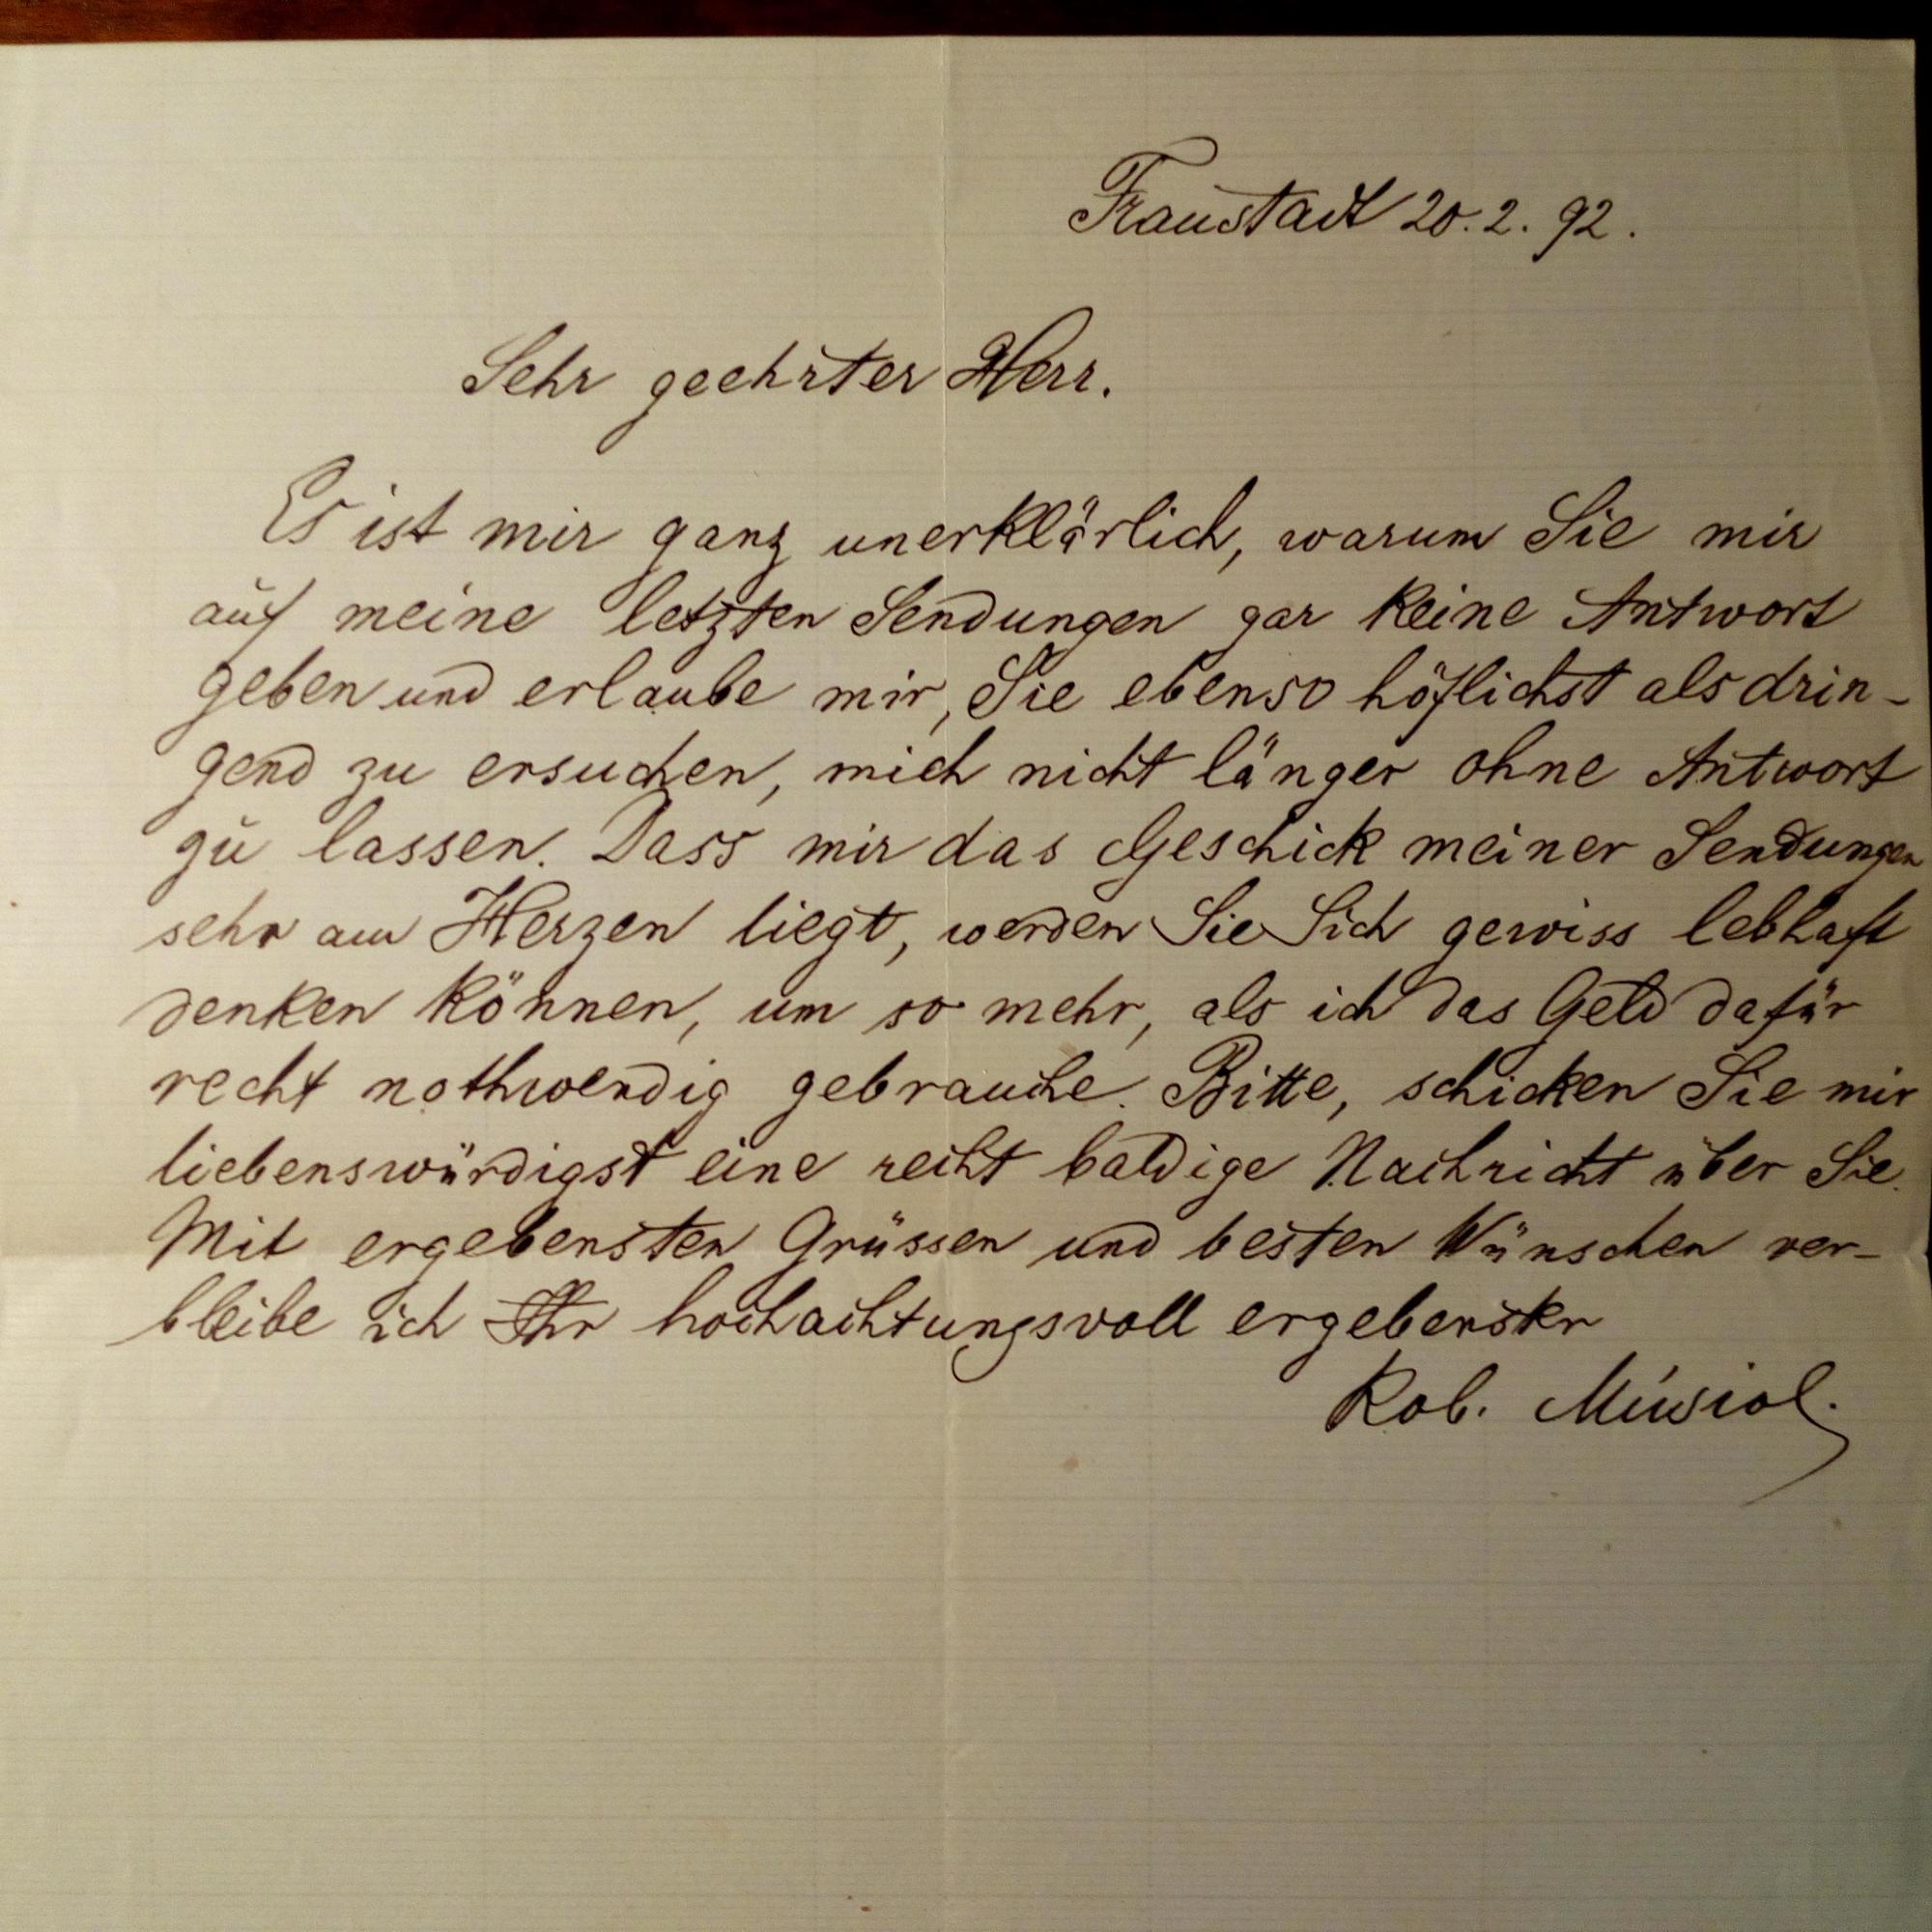 Fraustadt 20. 2. 92.
Sehr geehrter Herr.
Es ist mir ganz unerklärlich, warum Sie mir
auf meine letzten Sendungen gar keine Antwort
geben und erlaube mir, Sie ebenso höflichst als drin-
gend zu ersuchen, mich nicht länger ohne Antwort
zu lassen. Dass mir das Geschick meiner Sendungen
sehr am Herzen liegt, werden Sie Sich gewiss lebhaft
denken können, um so mehr, als ich das Geld dafür
recht nothwendig gebrauche. Bitte, schicken Sie mir
liebenswürdigst eine recht baldige Nachricht über Sie.
Mit ergebensten Grüssen und besten Wünschen ver-
bleibe ich Ihr hochachtungsvoll ergebenster
Rob. Musiol.